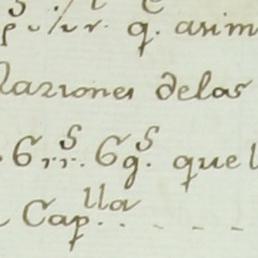 q. asim
laziones delas
6rr.s 6g.s que l
Cap.lla